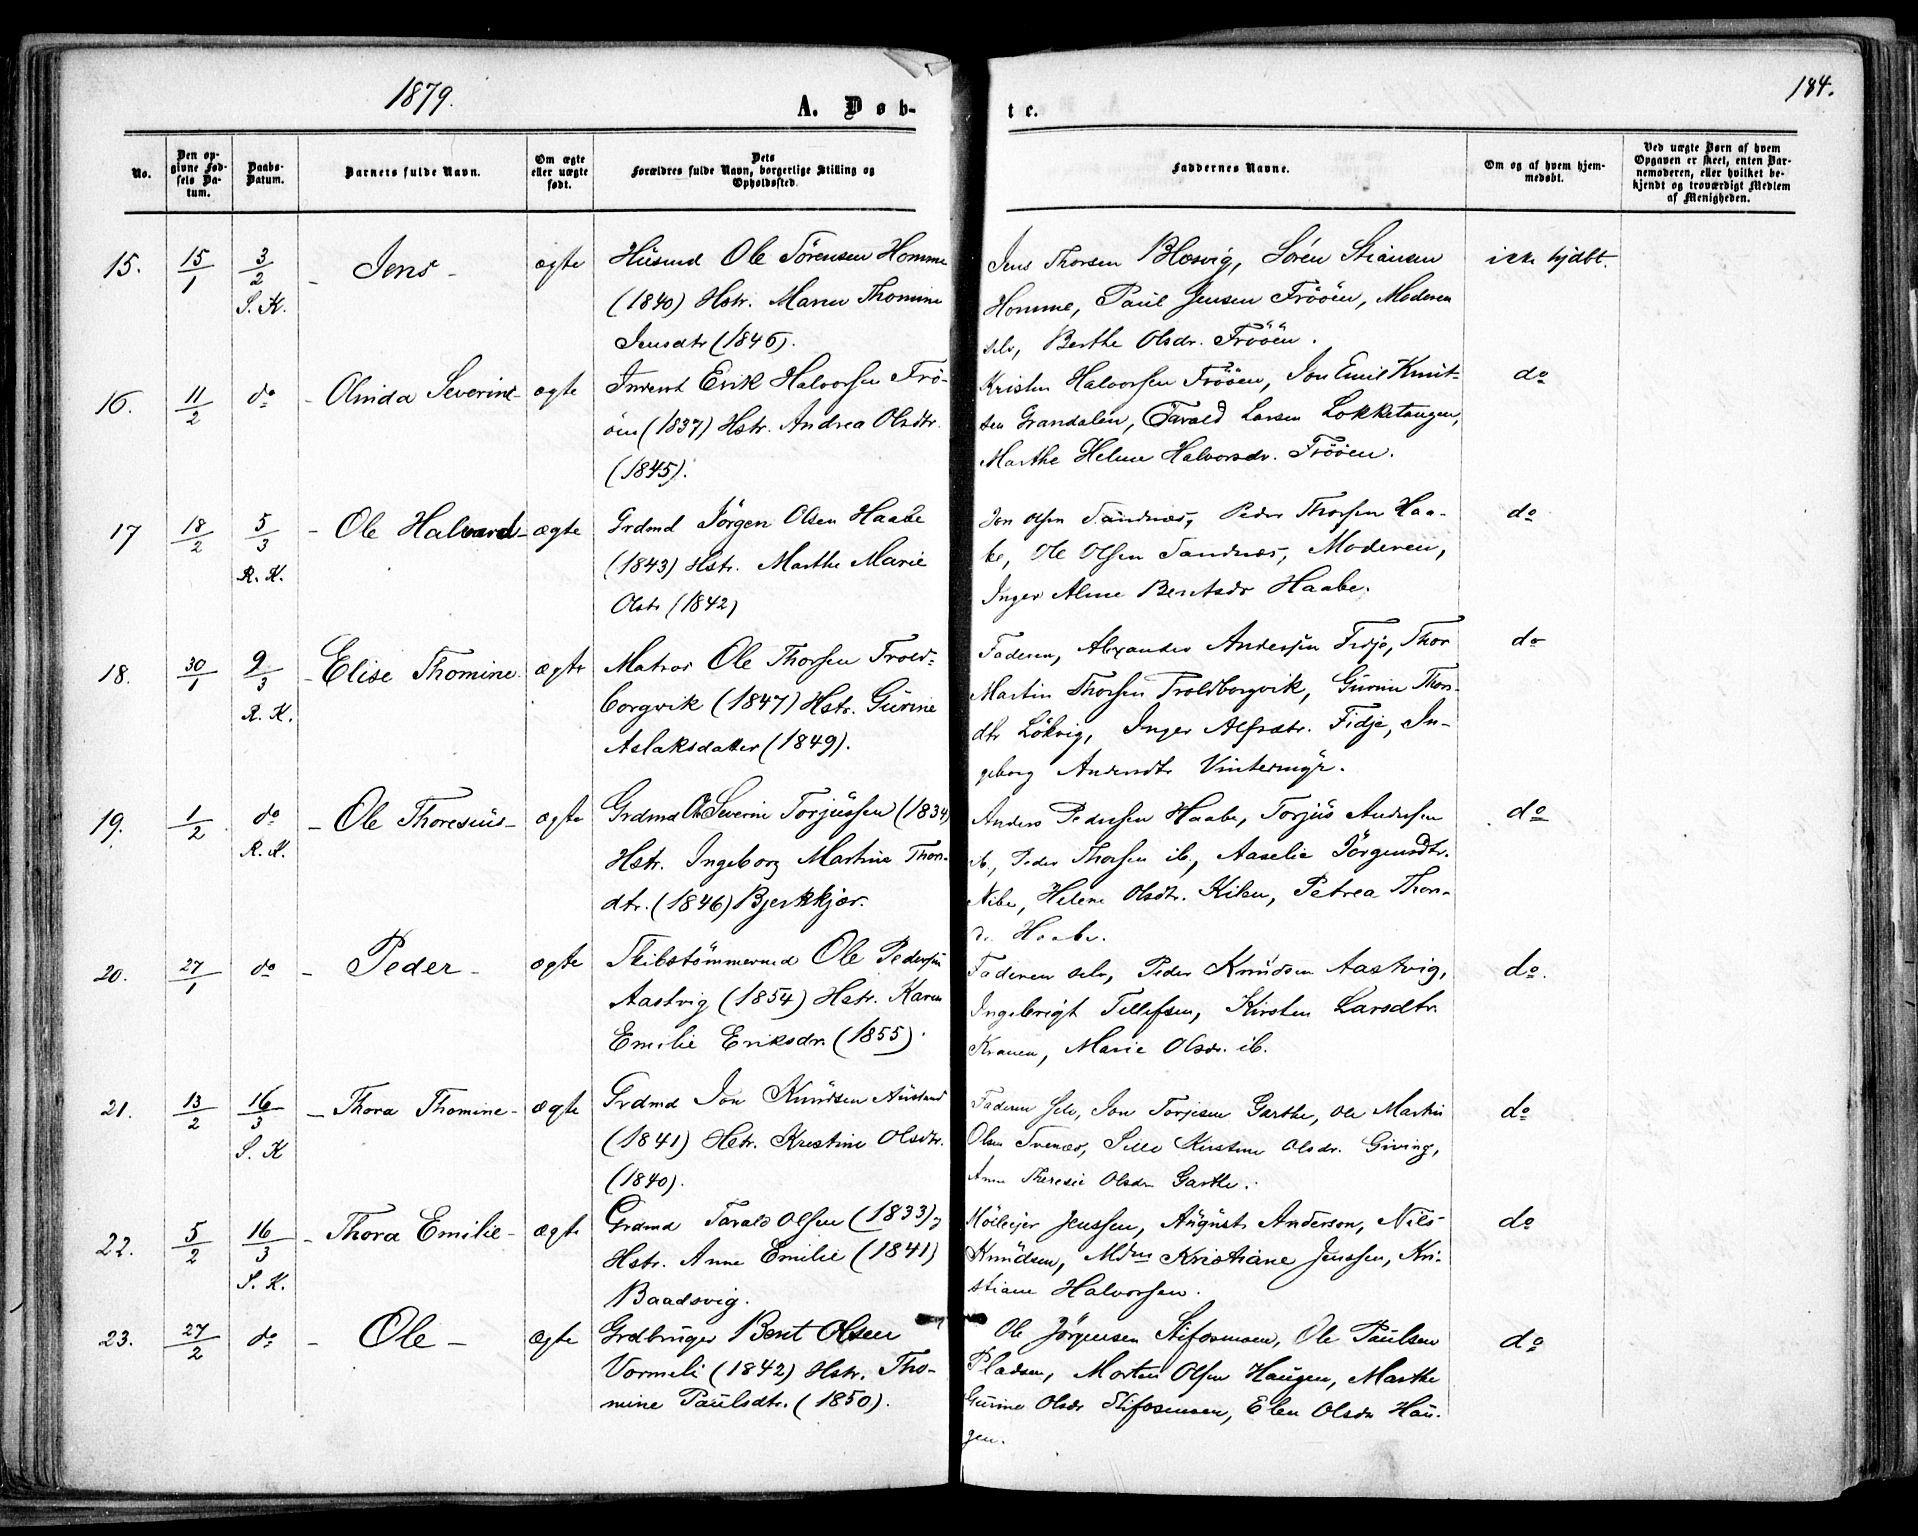 1879.
A. Døb-
te.
184.
No.
Den op-
givne Fød-
sels Da-
tum.
Daabs-
Datum.
Barnets fulde Navn.
Om ægte
eller uægte
født.
Dets
Forældres fulde Navn, borgerlige Stilling og
Opholdssted.
Faddernes Navne.
Om og af hvem hjem-
medøbt.
Ved uægte Børn af hvem
Opgaven er skeet, enten Bar-
nemoderen, eller hvilket be-
kjendt og troværdigt Medlem
af Menigheden.
15. 15/1 3/2 S. K. - Jens - ægte
Husmd Ole Sørensen Homme
(1840) Hstr. Maren Thomine
Jensdtr (1846).
Jens Thorsen Blæsvig, Søren Stiansen
Homme, Paul Jensen Frøöen, Moderen
selv, Berthe Olsdr. Frøöen.
ikke hjdbt.
16. 11/2 do - Olinda Severine - ægte
Erik Halvorsen Frö-
öen (1837) Hstr. Andrea Olsdtr.
(1845).
Kristen Halvorsen Frööen, Jon Emil Knut-
sen Grandalen, Tarald Larsen Lokketangen,
Marthe Helene Halvorsdr. Frööen.
do
17 18/2 5/3 R. K. - Ole Halvard - ægte
Grdmd Jörgen Olsen Haabe
(1843) Hstr. Marthe Marie
Olstr (1842)
Jon Olsen Sandnæs, Peder Thorsen Haa-
be, Ole Olsen Sandnæs, Moderen,
Inger Aline Berntsdr Haabe.
do
18. 30/1 9/3 R. K. - Elise Thomine. ægte
Matros Ole Thorsen Trold-
borgvik (1847) Hstr. Gurine
Aslaksdatter (1849).
Faderen, Alexander Andersen Fidje, Thor
Martin Thorsen Troldborgvik, Gurine Thors-
dtr Lökvig, Inger Alfsdtr. Fidje, In-
geborg Andersdtr Vintermyr.
do
19. 1/2 do R. K. - Ole Thoresius - ægte
Grdmd Ole Severin Torjussen (1834)
Hstr. Ingeborg Martine Thors-
dtr. (1846) Bjerkkjær.
Anders Pedersen Haabe, Torjus Andersen
ib., Peder Thorsen ib., Aaselie Jörgensdtr.
Nibe, Helene Olsdtr. Kilen, Petrea Thors-
dr Haabe.
do
20. 27/1 do - Peder - ægte
Skibstömmermd Ole Pedersen
Aastvig (1854) Hstr. Karen
Emilie Eriksdr. (1855).
Faderen selv, Peder Knudsen Aastvig,
Ingebrigt Tellefsen, Kirsten Larsdtr.
Kranen, Marie Olsdr. ib.
do.
21. 13/2 16/3 S. K - Thora Thomine - ægte
Grdmd Jon Knudsen Auland
(1841) Hstr. Kristine Olsdtr.
(1840).
Faderen selv, Jon Torjesen Garthe, Ole Martin
Olsen Tvenæs, Sille Kirstine Olsdr. Giving,
Anne Theresie Olsdr Garthe.
do
22. 5/2 16/3 S. K. - Thora Emilie - ægte
Grdmd Tarald Olsen (1833),
Hstr. Anne Emilie (1841)
Baadsvig.
Jenssen, August Anderson, Nils
Knudsen, Mdm Kristiane Jenssen, Kri-
stiane Halvorsen.
do
23. 27/2 do - Ole - ægte
Grdbruger Bent Olsen
Vormeli (1842) Hstr. Tho-
mine Paulsdtr. (1850).
Ole Jörgensen Stifosmoen, Ole Paulsen
Pladsen, Morten Olsen Haugen, Marthe
Gurine Olsdr Stifosmoen, Elen Olsdr Hau-
gen.
do